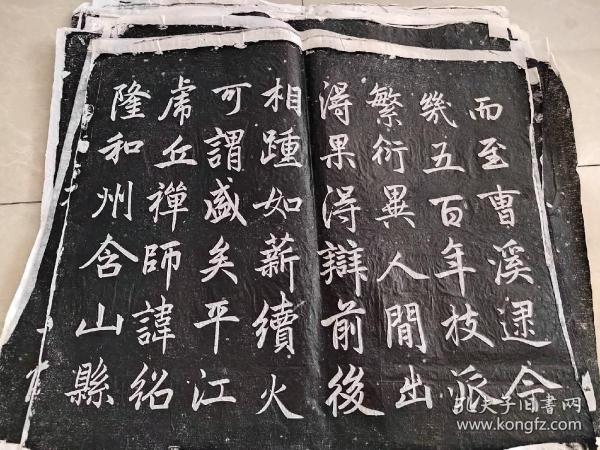 而至曹溪逮今
幾五百年枝派
繁衍異人間出
得果得辯前後
相踵如薪續火
可謂盛矣平江
虎丘禪師諱紹
隆和州含山縣
孔夫子旧书网
www.kongfz.com